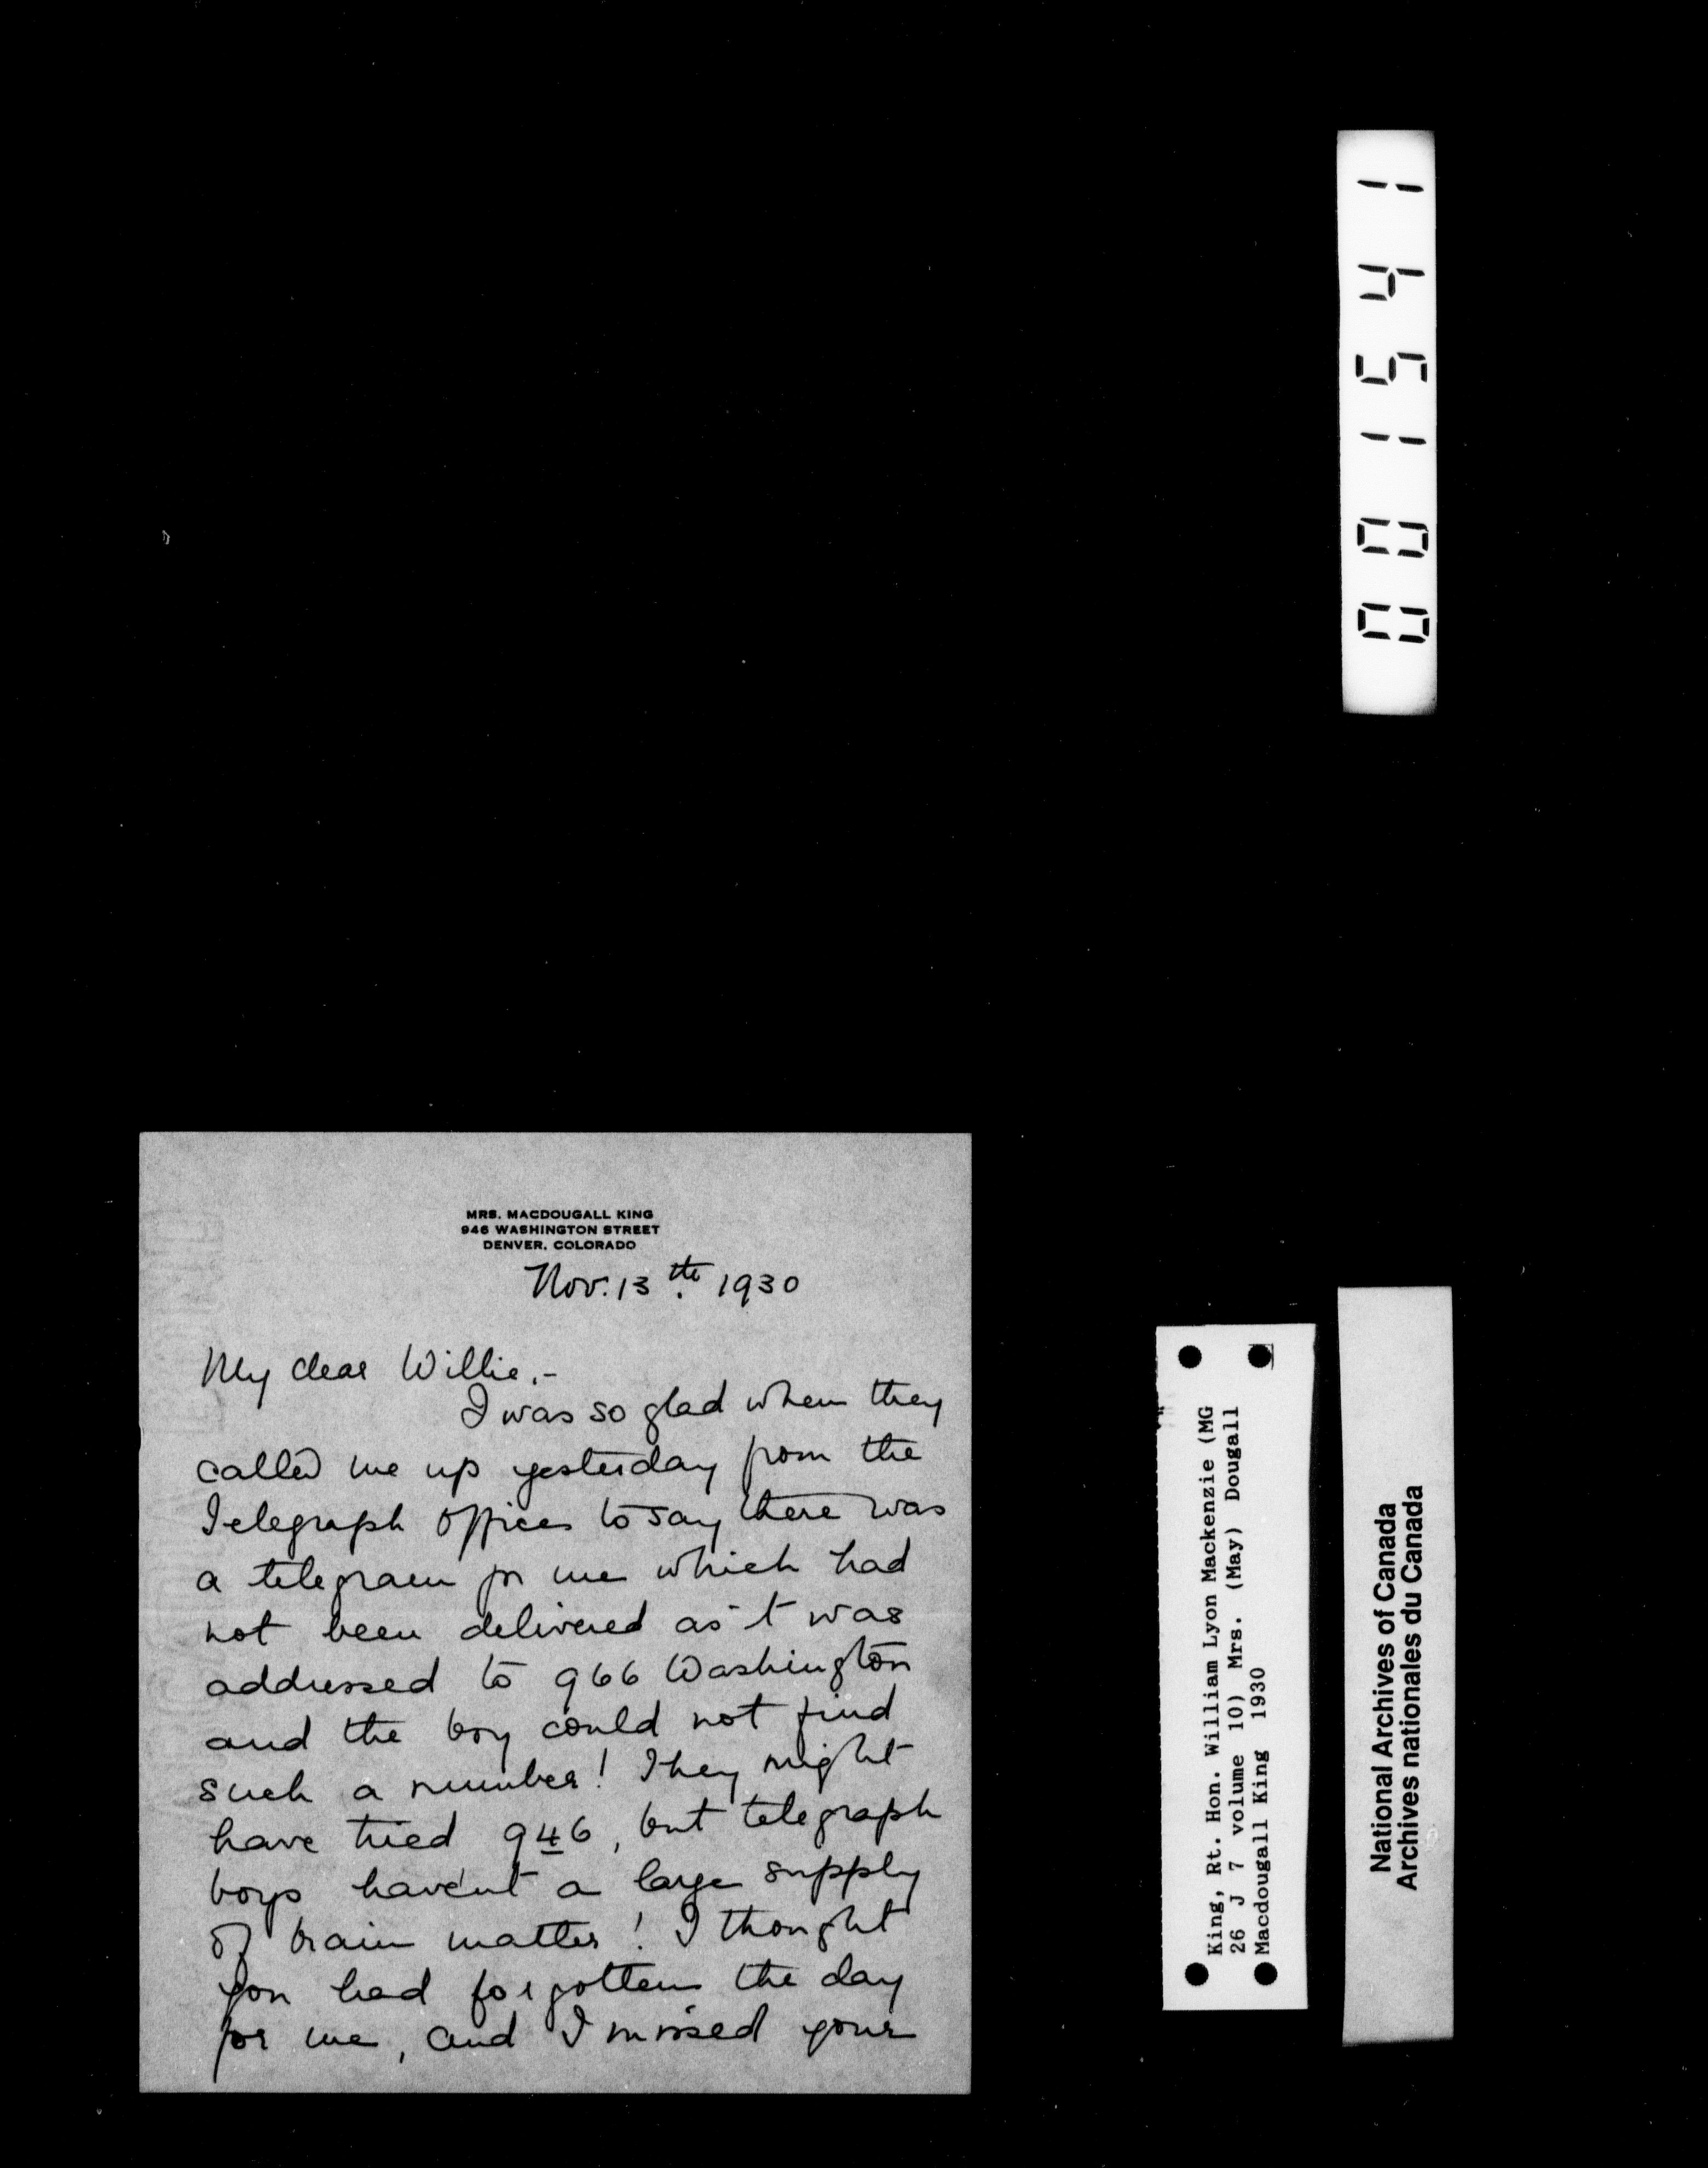 MRS. MACDOUGALL KING
946 WASHINGTON STREET
DENVER, COLORADO
Nov. 13th. 1930
My dear Willie,-
I was so glad when they
called me up yesterday from the
Telegraph Offices to say there was
a telegram for me which had
not been delivered as 't was
addressed to 966 Washington
and the boy could not find
such a number! They might
have tried 946, but telegraph
boys have'nt a large supply
of brain matter! I thought
you had forgotten the day
for me, and I missed your
001541
King, Rt. Hon. William Lyon Mackenzie (MG
26 J 7 volume 10) Mrs. (May) Dougall
Macdougall King 1930
National Archives of Canada
Archives nationales du Canada